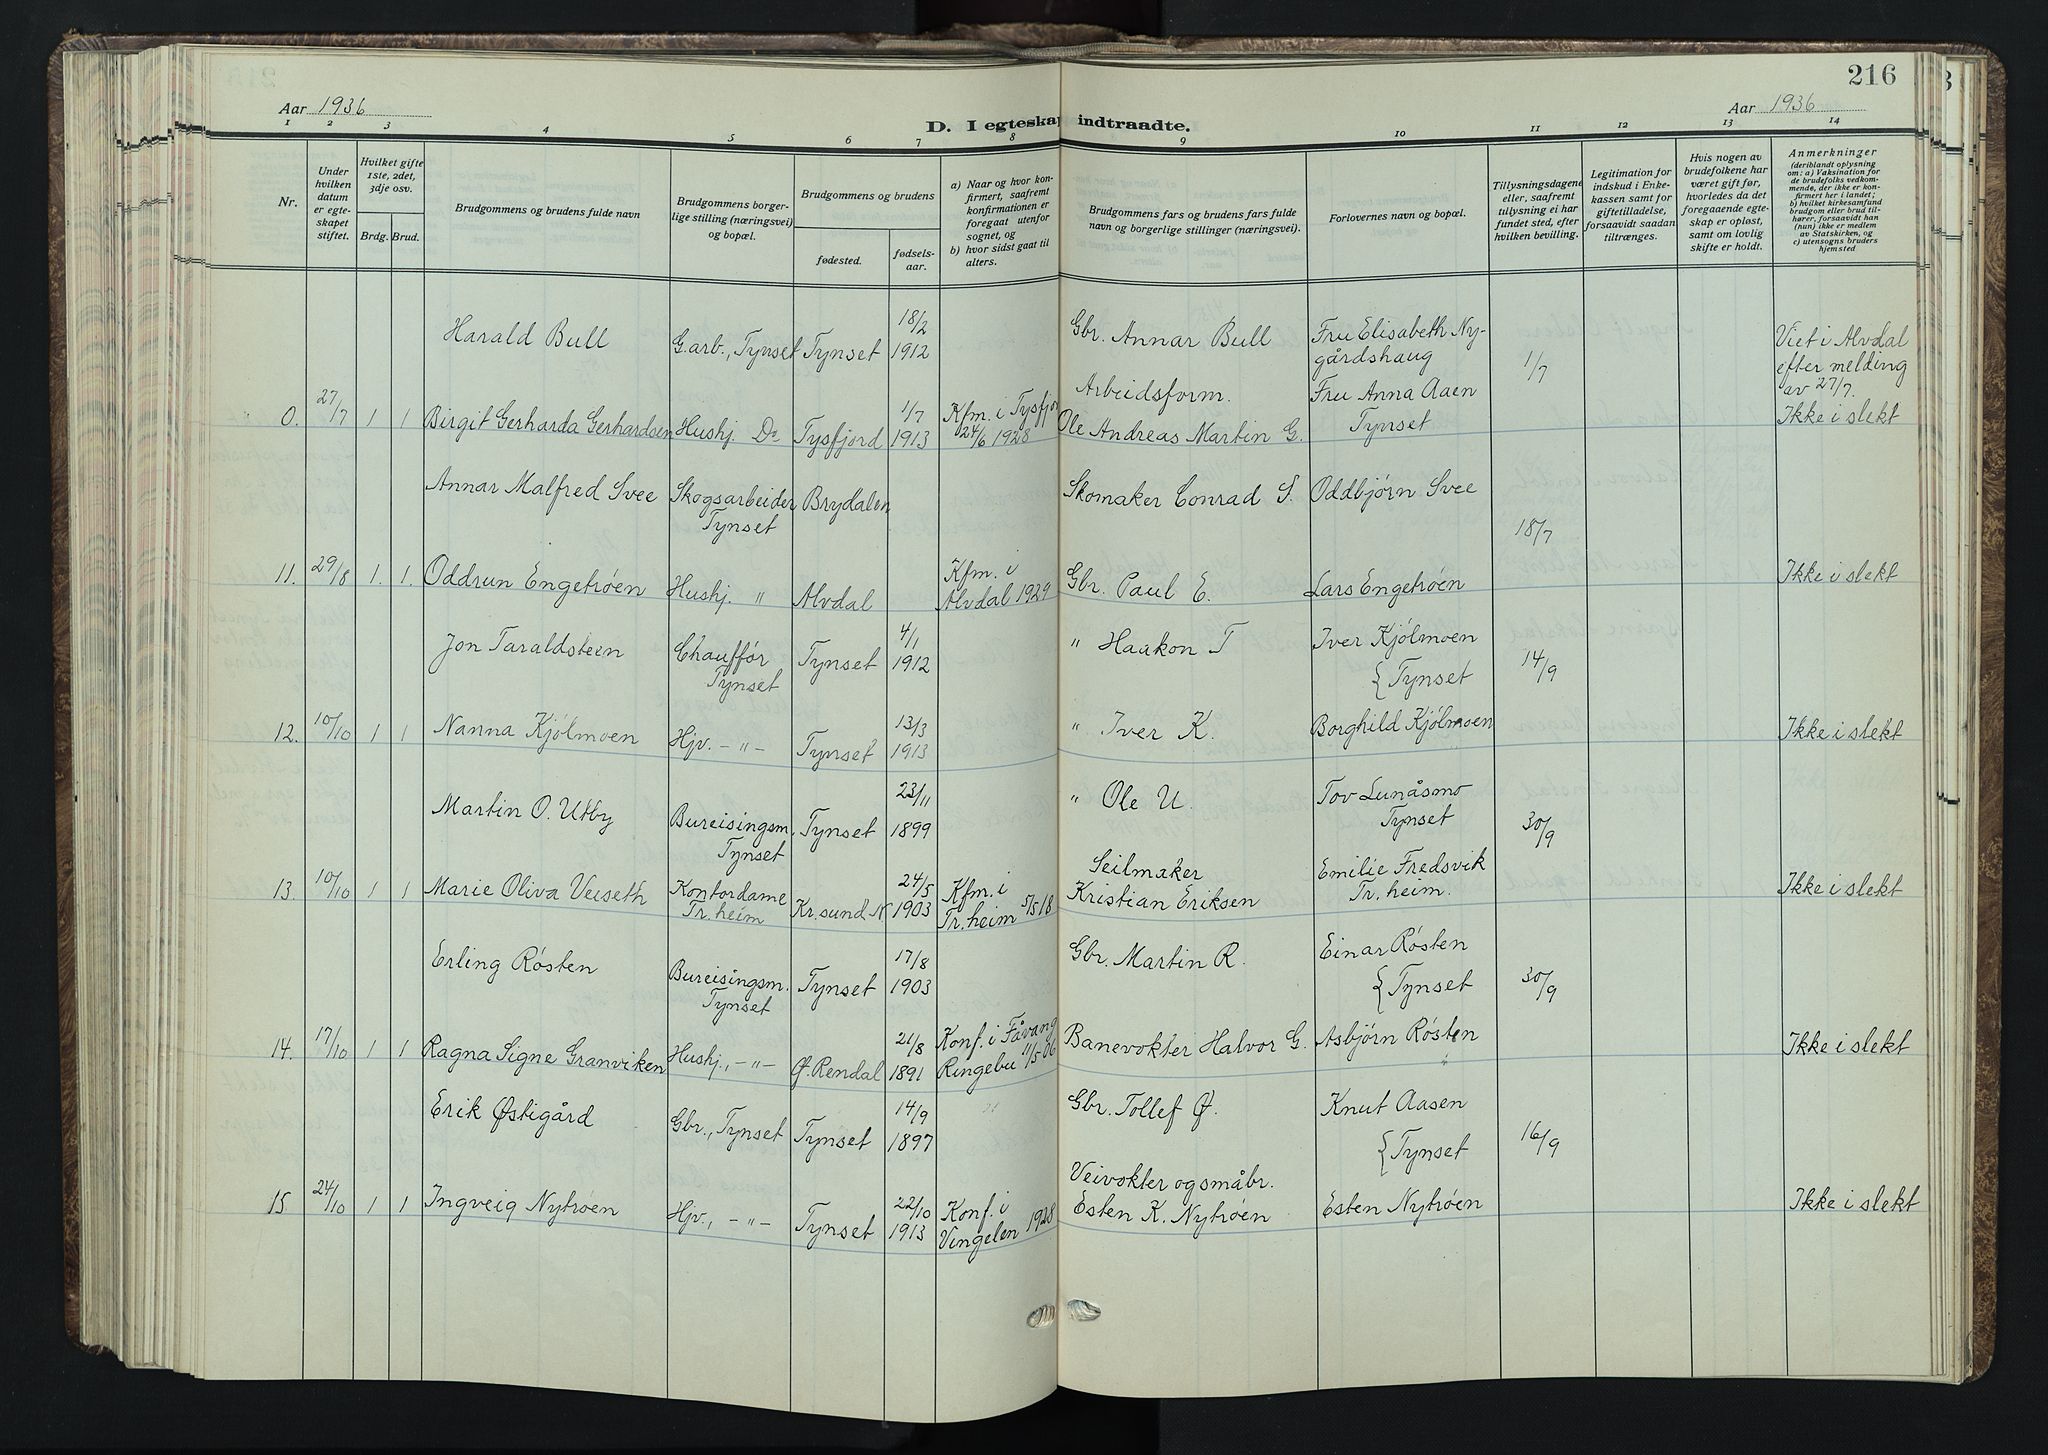 216
Aar 1936
Aar 1936
D. I egteskap indtraadte.
1 2 3 4 5 6 7 8 9 10 11 12 13 14
Nr.
Under hvilken datum er egteskapet stiftet.
Hvilket gifte 1ste, 2det, 3dje osv.
Brdg. Brud.
Brudgommens og brudens fulde navn
Brudgommens borgerlige stilling (næringsvei) og bopæl.
Brudgommens og brudens
fødested.
fødselsaar.
a) Naar og hvor konfirmert, saafremt konfirmationen er foregaat utenfor sognet, og
b) hvor sidst gaat til alters.
Brudgommens fars og brudens fars fulde navn og borgerlige stillinger (næringsvei).
Forlovernes navn og bopæl.
Tillysningsdagene eller, saafremt tillysning ei har fundet sted, efter hvilken bevilling.
Legitimation for indskud i Enkekassen samt for giftetilladelse, forsaavidt saadan tiltrænges.
Hvis nogen av brudefolkene har været gift før, hvorledes da det foregaaende egteskap er opløst, samt om lovlig skifte er holdt.
Anmerkninger
(deriblandt oplysning om: a) Vaksination for de brudefolks vedkommende, der ikke er konfirmert her i landet; b) hvilket kirkesamfund brudgom eller brud tilhører, forsaavidt han (hun) ikke er medlem av Statskirken, og c) utensogns bruders hjemsted
Harald Bull G.arb., Tynset Tynset 18/2 1912 Gbr. Annar Bull Fru Elisabeth Nygårdshaug 1/7 Viet i Alvdal efter melding av 27/7.
0. 27/7 1 1 Birgit Gerharda Gerhardsen Hushj. Do Tysfjord 1/7 1913 Kfm. i Tysfjor 24/6 1928 Arbeidsform. Ole Andreas Martin G. Fru Anna Aaen Tynset Ikke i slekt
Annar Malfred Svee Skogsarbeider Tynset Brydalen Skomaker Conrad S. Oddbjørn Svee 18/7
11. 29/8 1. 1. Oddrun Engetrøen Hushj. " Alvdal Kfm. i Alvdal 1929 Gbr. Paul E. Lars Engetrøen Ikke i slekt
Jon Taraldsteen Chauffør Tynset Tynset 4/1 1912 " Haakon T Iver Kjølmoen { Tynset 14/9
12. 10/10 1 1 Nanna Kjølmoen Hjv. -"- Tynset 13/3 1913 " Iver K. Borghild Kjølmoen Ikke i slekt
Martin O. Utby Bureisingsm. Tynset Tynset 23/11 1899 " Ole U. Tov Lunåsmo Tynset 30/9
13. 10/10 1 1 Marie Oliva Veiseth Kontordame Tr.heim Kr.sund N 24/5 1903 Kfm. i Tr.heim 5/5 18 Seilmaker Kristian Eriksen Emilie Fredsvik Tr.heim. Ikke i slekt
Erling Røsten Bureisingsm. Tynset Tynset 17/8 1903 Gbr. Martin R. Einar Røsten { Tynset 30/9
14. 17/10 1 1 Ragna Signe Granviken Hushj., -"- Ø. Rendal 21/8 1891 Konf. i Fåvang Ringebu 11/5 06 Banevokter Halvor G. Asbjørn Røsten Ikke i slekt
Erik Østigård Gbr., Tynset Tynset 14/9 1897 Gbr. Tollef Ø. Knut Aasen { Tynset 16/9
15 24/10 1 1 Ingveig Nytrøen Hjv., -"- Tynset 22/10 1913 Konf. i Vingelen 1928 Veivokter og småbr. Esten K. Nytrøen Esten Nytrøen Ikke i slekt